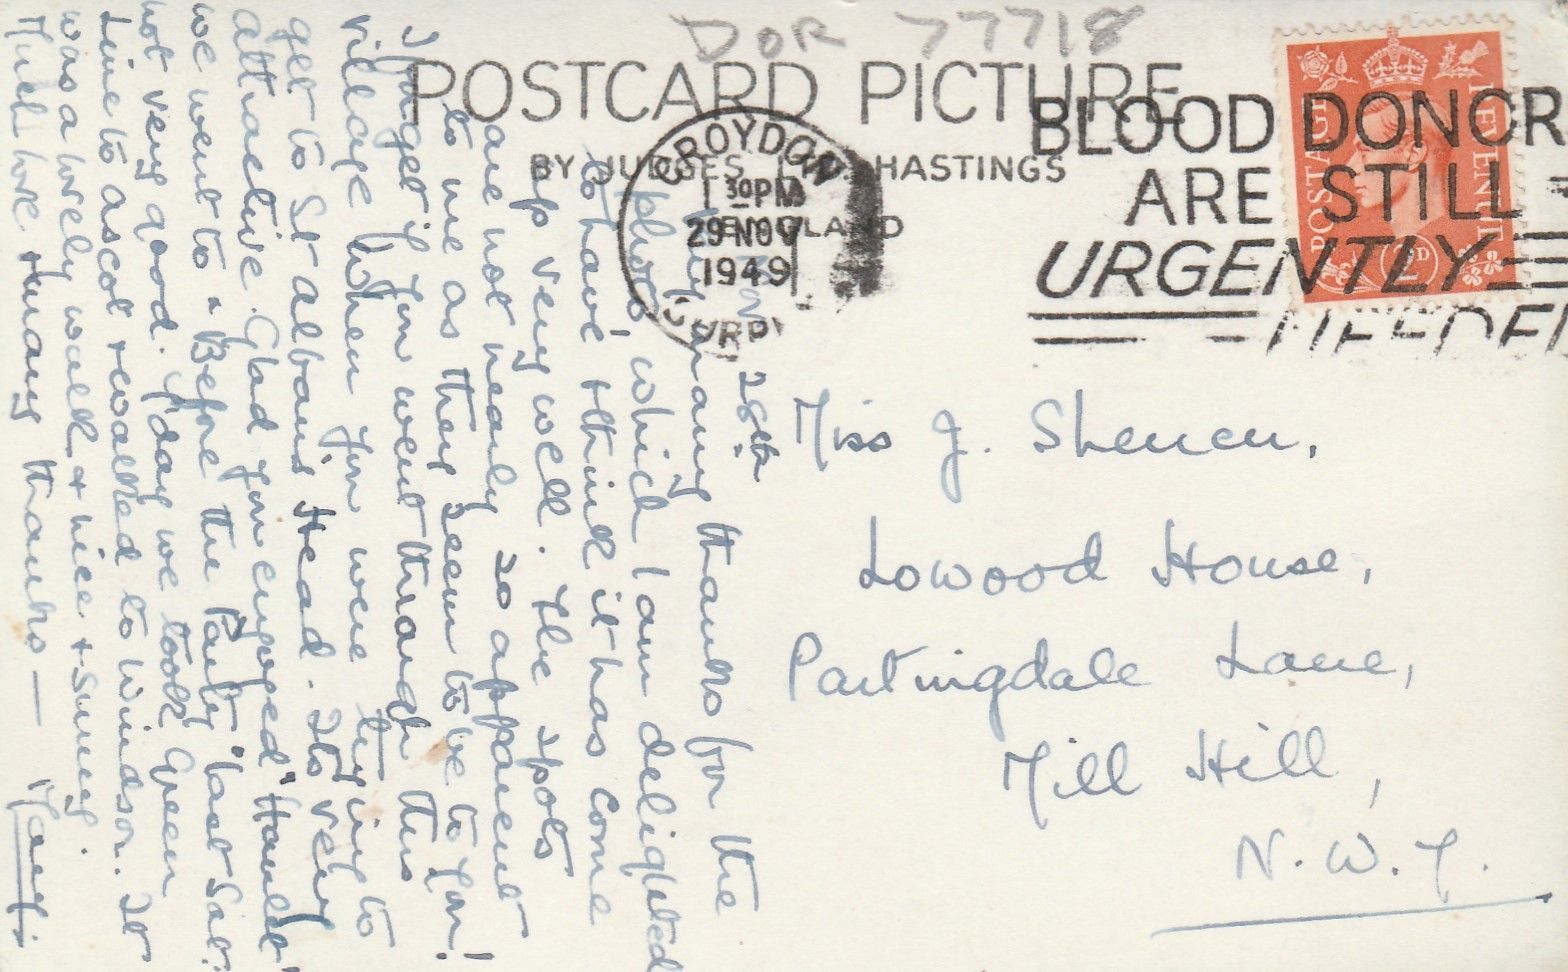 DOR 77718
POSTCARD PICTURE
BY JUDGES HASTINGS
CROYDON
30 PM
29 NOV
1949
BLOOD DONOR
ARE STILL
URGENTLY
NEEDED
POSTAGE
REVENUE
Miss J. Shenen,
Lowood House,
Partingdale Lane,
Mill Hill,
N.W.7.
28th
Very many thanks for the
photo which I am delighted
to have & think it has come
up very well. The spots
are not nearly so apparent
to me as they seem to be to you!
I forget if you went through this
village when you were trying to
get to St Albans Head. Its very
attractive. Glad you enjoyed "Hamlet"
we went to "Before the Party" last Sat:
not very good. Today we took Green
Line to Ascot & walked to Windsor. It
was a lovely walk & nice & sunny.
Much love & many thanks —
Mary.